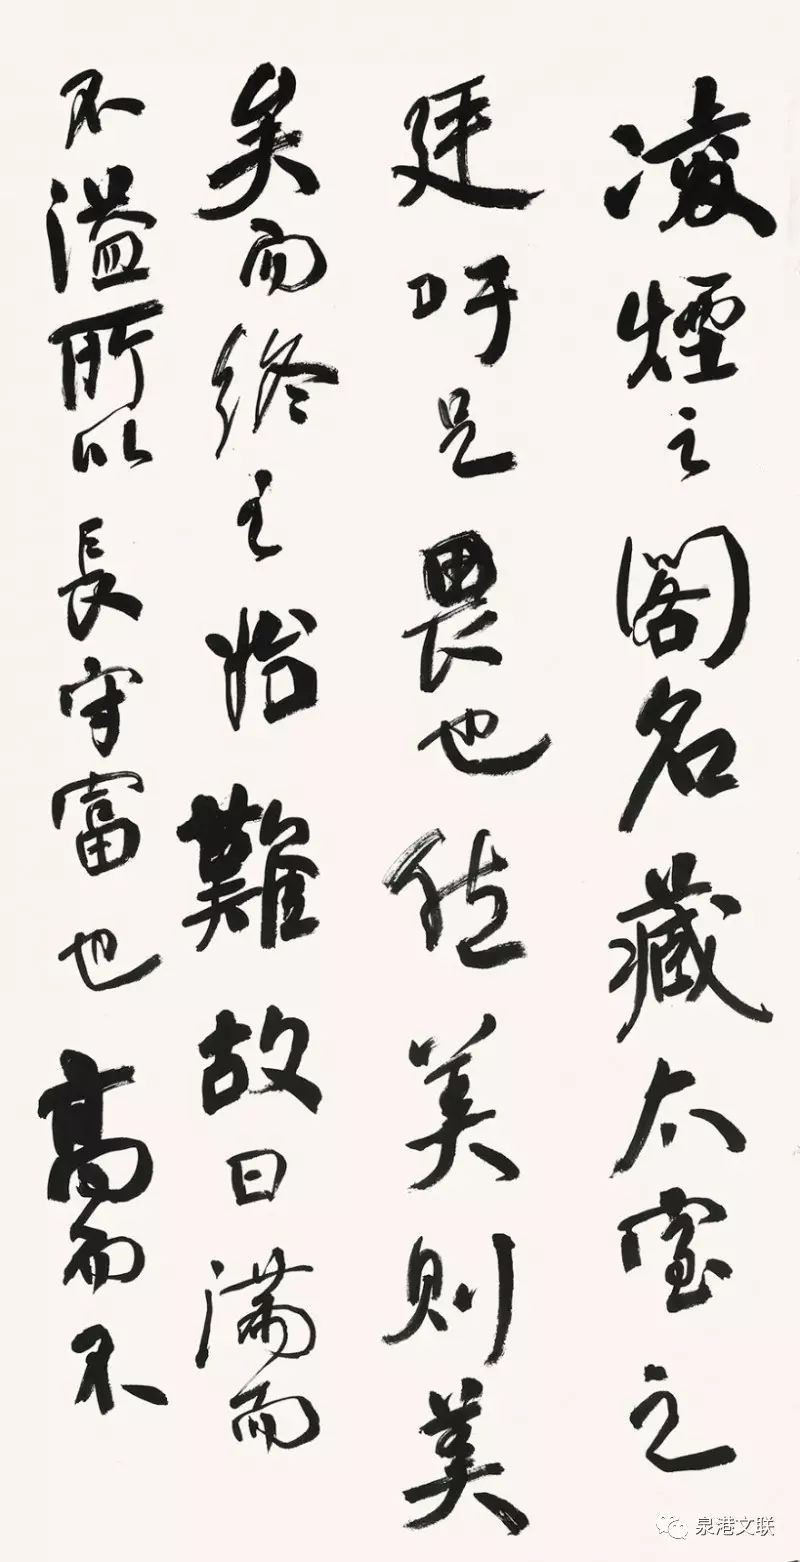 凌煙之閣名藏太室之
廷吁足畏也然美則美
矣而終之始難故曰滿而
不溢所以長守富也高而不
泉港文联